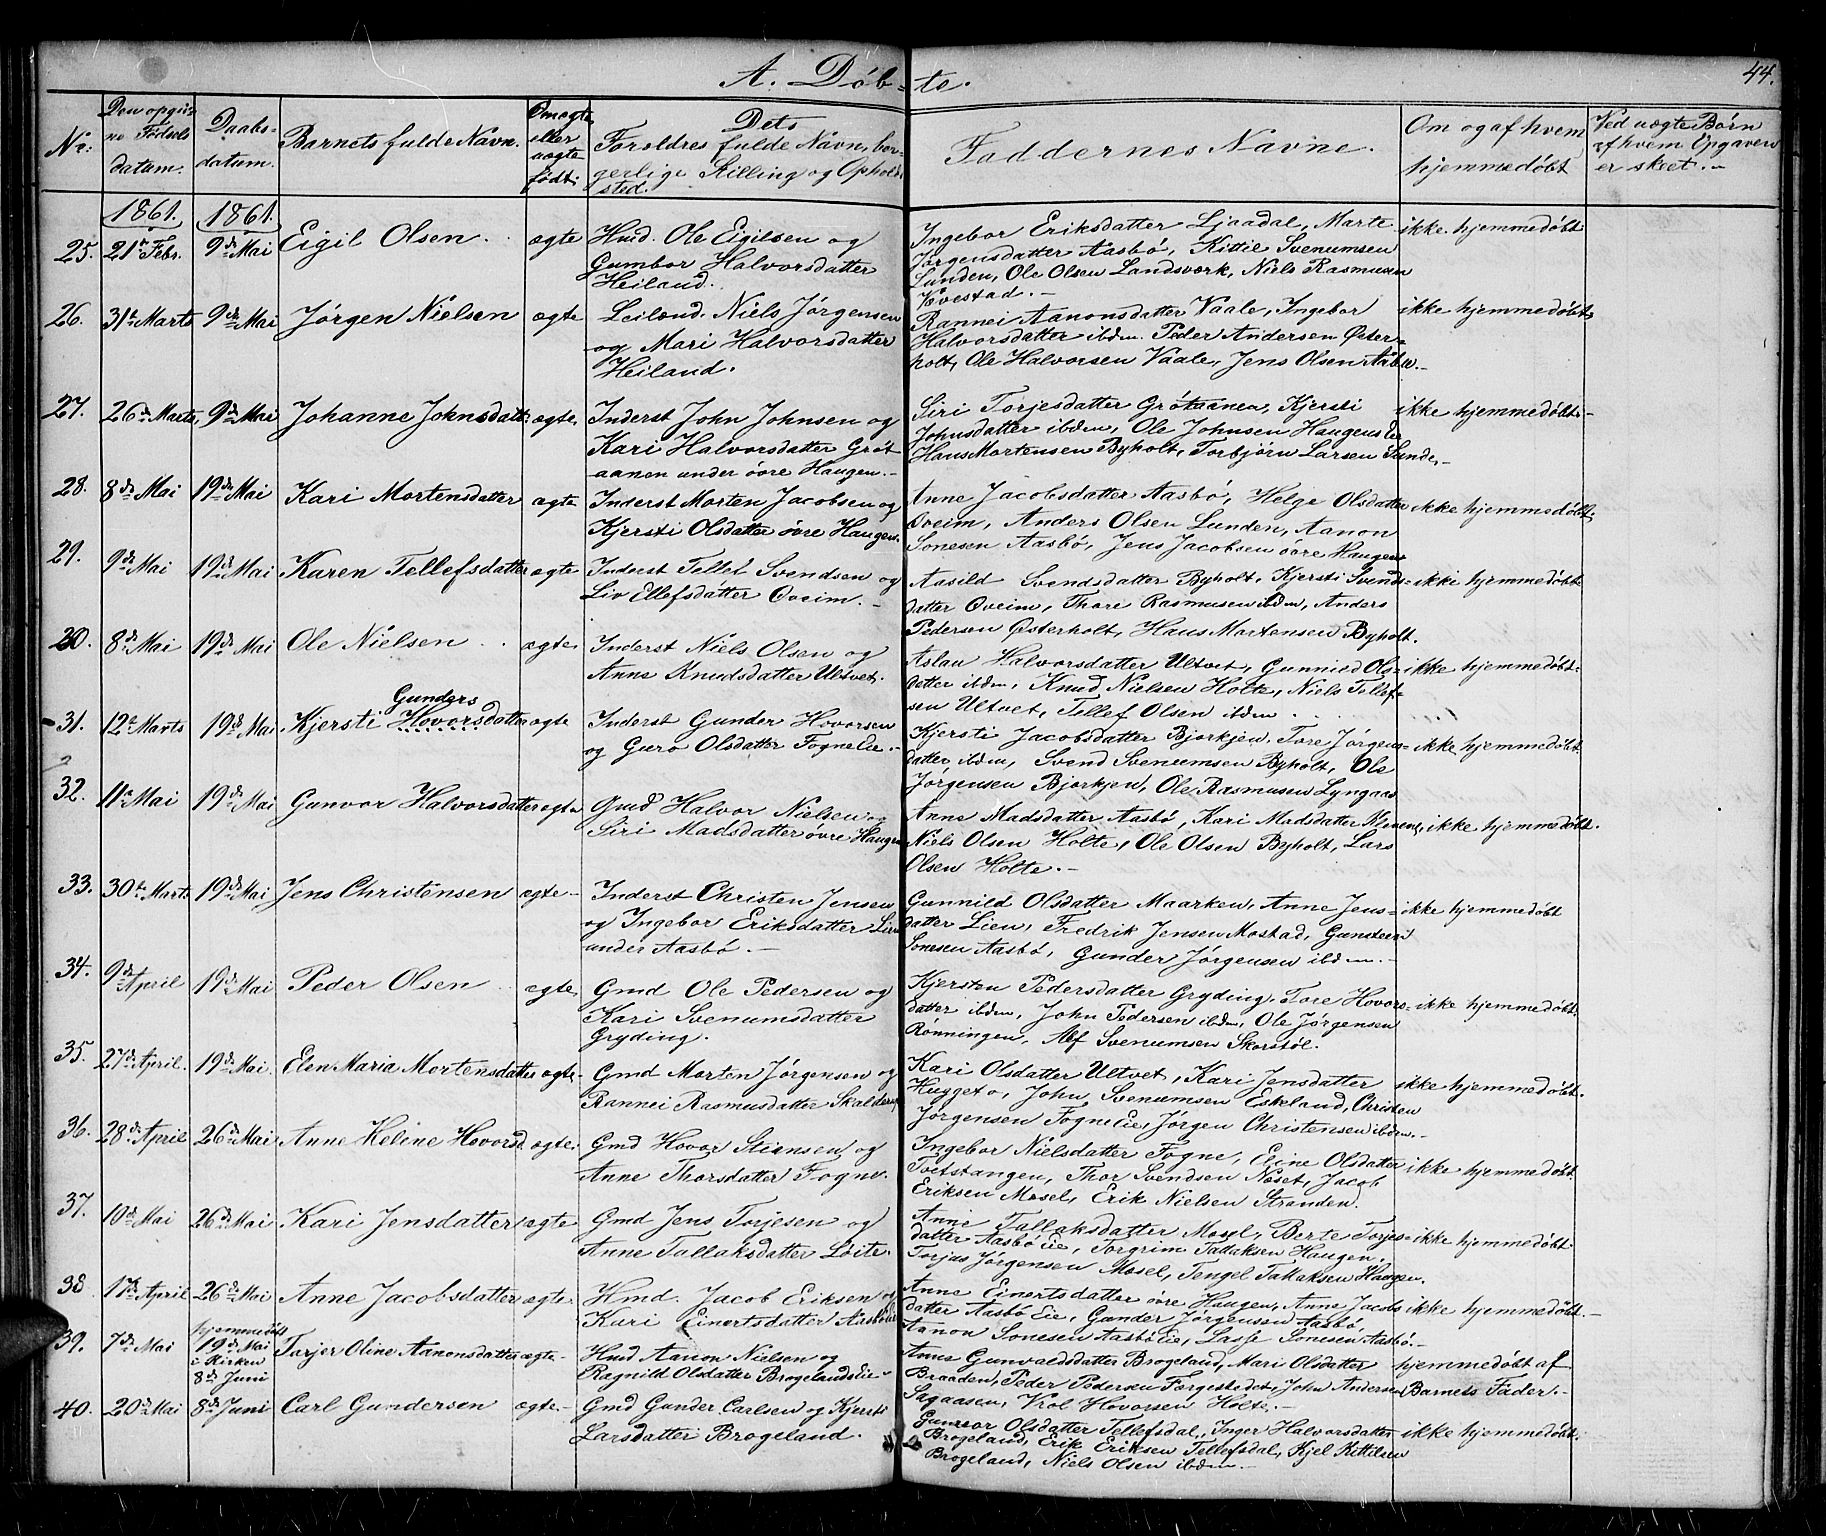 A. Döb-te.
44.
No:
Den opgiv-
ne Fødsels
datum.
Daabs-
datum.
Barnets fulde Navn.
Om ægte
eller
uægte
født:
Dets
Forældres fulde Navn, bor-
gerlige Stilling og Opholds
sted.
Faddernes Navne.
Om og af hvem
hjemmedøbt
Ved uægte Børn
af hvem Opgaven
er skeet.-
1861. 1861.
25. 21de Febr. 9de Mai Eigil Olsen. ægte Hmd. Ole Eigilsen og
Gumbor Halvorsdatter
Heiland.
Ingebor Eriksdatter Ljaadal, Marte
Jørgensdatter Aasbø, Kittil Svenumsen
Lunden, Ole Olsen Landsværk, Niels Rasmusen
Vævestad.-
ikke hjemmedøbt
26. 31te Marts 9de Mai Jørgen Nielsen ægte Leilænd. Niels Jørgensen
og Mari Halvorsdatter
Heiland.
Rannei Aanonsdatter Vaale, Ingebor
Halvorsdatter ibdm. Peder Andersen Øster-
holt, Ole Halvorsen Vaale, Jens Olsen
ikke hjemmedøbt
27. 26de Marts, 9de Mai Johanne Johnsdatt: ægte. Inderst John Johnsen og
Kari Halvorsdatter Gröt-
aanen under övre Haugen.-
Siri Torjesdatter Grötaanen, Kjersti
Johnsdatter ibdem, Ole Johnsen Haugen
Hans Mortensen Byholt, Torbjörn Larsen Sunde.-
ikke hjemmedøbt.-
28. 8de Mai 19de Mai Kari Mortensdatter ægte Inderst Morten Jacobsen og
Kjersti Olsdatter övre Haugen.
Anne Jacobsdatter Aasbø, Helge Olsdatter
Oveim, Anders Olsen Lunden, Aanon
Sonesen Aasbø, Jens Jacobsen övre Haugen
ikke hjemmedøbt
29. 9de Mai 19de Mai Karen Tellefsdatter ægte Inderst Tellef Svendsen og
Liv Ellefsdatter Oveim.-
Aasild Svendsdatter Byholt, Kjersti Svends-
datter Oveim, Thore Rasmusen ibdm, Anders
Pedersen Østerholt, Hans Mortensen Byholt.
ikke hjemmedøbt
30. 8de Mai 19de Mai Ole Nielsen ægte. Inderst Niels Olsen og
Anne Knudsdatter Ultvet.
Aslau Halvorsdatter Ultvet, Gunnild Ols-
datter ibdm, Knud Nielsen Holte, Niels Tellef-
sen Ultvet, Tellef Olsen ibdm
ikke hjemmedøbt-
Gunders
31. 12te Marts 19de Mai Kjersti Hovorsdatter ægte Inderst Gunder Hovorsen
og Guro Olsdatter Fogneliie.-
Kjersti Jacobsdatter Bjorkjen. Tore Jørgens-
datter ibdm, Svend Svenumsen Byholt, Ole
Jørgensen Bjorkjen, Ole Rasmusen Lyngaas
ikke hjemmedøbt
32. 11te Mai 19de Mai Gunvor Halvorsdatter ægte Gmd Halvor Nielsen og
Siri Madsdatter övre Haugen
Anne Madsdatter Aasbø, Kari Madsdatter
Niels Olsen Holte, Ole Olsen Byholt, Lars
Olsen Holte.-
ikke hjemmedøbt.
33. 30te Marts 19de Mai Jens Christensen ægte- Inderst Christen Jensen
og Ingebor Eriksdatter Lien
under Aasbø.-
Gunnild Olsdatter Maarken, Anne Jens-
datter Lien, Fredrik Jensen Mostad, Gunsteen
Sonesen Aasbø, Gunder Jørgensen ibdm.-
ikke hjemmedøbt
34. 9de April 19de Mai Peder Olsen ægte Gmd Ole Pedersen og
Kari Svenumsdatter
Gryding.
Kjersten Pedersdatter Gryding. Tore Hovors-
datter ibdm, John Pedersen ibdm, Ole Jørgensen
Rønningen, Alf Svenumsen Skorstøl.
ikke hjemmedøbt.
35. 27de April. 19de Mai. Elen Maria Mortensdatter ægte. Gmd Morten Jørgensen og
Rannei Rasmusdatter
Kari Olsdatter Ultvet, Kari Jensdatter
Hugget o, John Svenumsen Eskeland, Christen
Jørgensen Fogneliie, Jørgen Christensen ibdm.-
ikke hjemmedøbt.
36. 28de April 26de Mai Anne Heline Hovorsd ægte. Gmd Hovor Stiansen og
Anne Thorsdatter Fogne.
Ingebor Nielsdatter Fogne, Eline Olsdatter
Tvetstangen, Thor Svendsen Næset, Jacob
Eriksen Mosel, Erik Nielsen Stranden.
ikke hjemmedøbt
37. 10de Mai 26de Mai Kari Jensdatter ægte Gmd Jens Torjesen og
Anne Tallaksdatter Löite.
Anne Tallaksdatter Mosel, Berte Torjes-
datter Aasbø Eie, Torgrim Tallaksen Haugen.
Torjus Jørgensen Mosel, Tengel Tallaksen Haugen.
ikke hjemmedøbt
38 17de April 26de Mai Anne Jacobsdatter ægte. Hmd. Jacob Eriksen og
Kari Einertsdatter Aasbø Eie
Anne Einertsdatter övre Haugen, Anne Jacobs
datter Aasbø Eie, Gunder Jørgensen Aasbø,
Aanon Sonesen Aasbø Eie, Lasse Sonesen Aasbø.-
ikke hjemmedøbt.-
39. 7de Mai hjemmedøbt
19de Mai
i Kirken
8de Juni
Torjer Oline Aanonsdatter ægte- Hmd Aanon Nielsen og
Ragnild Olsdatter Brogelandslie-
Anne Gunvaldsdatter Brogeland, Mari Olsdatter
Braaden, Peder Pedersen Forgestedet, John Andersen
Sagaasen, Vrol Hovorsen Holte.-
hjemmedøbt af
Barnets Fader.-
40. 20de Mai 8de Juni Carl Gundersen ægte.- Gmd Gunder Carlsen og Kjersti
Larsdatter Brogeland.
Gunvor Olsdatter Tellefsdal, Inger Halvorsdatter
Brogeland, Erik Eriksen Tellefsdal, Kjel Kittilsen
Brogeland, Niels Olsen ibdm.-
ikke hjemmedøbt.